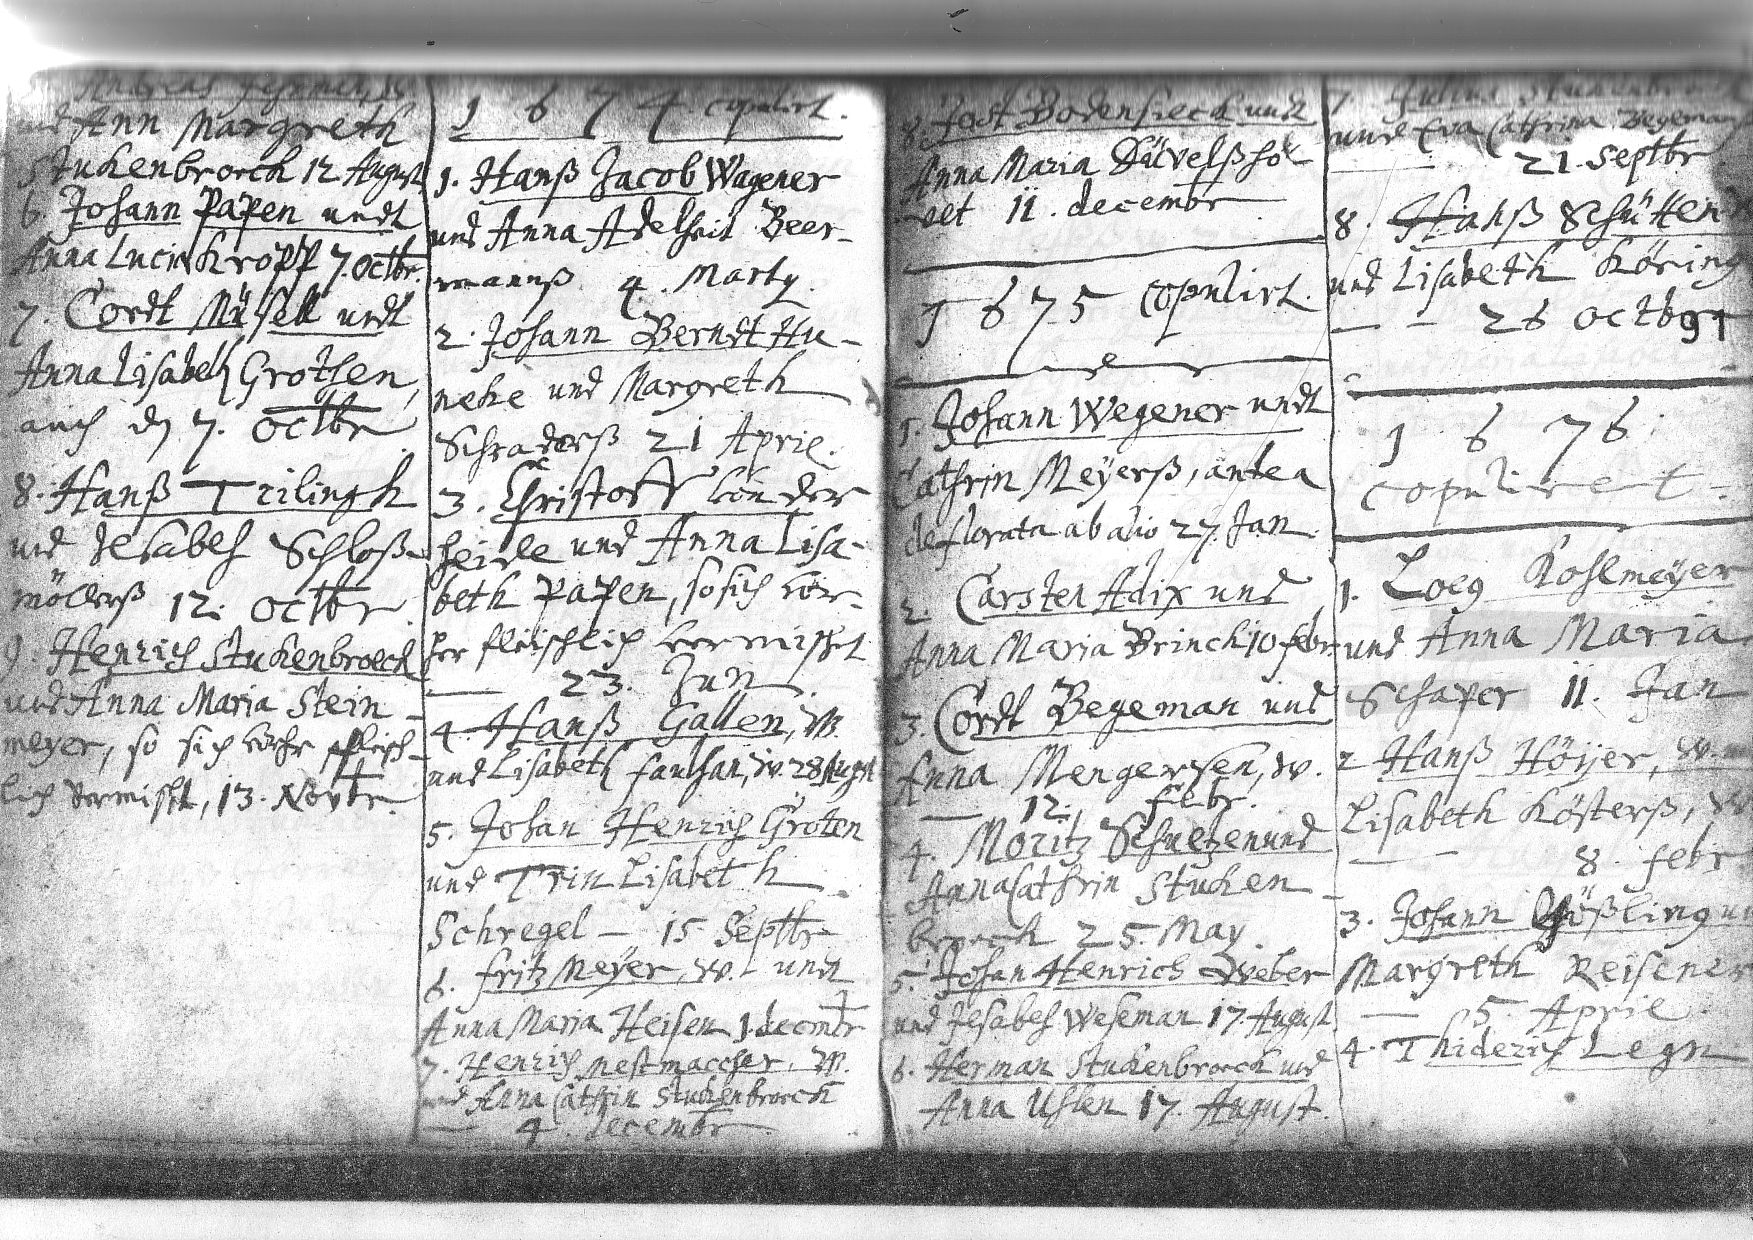 Andreas
und Ann Margreth
Stukenbroeck 12 August
6. Johann Papen undt
Anna Lucia Kropp 7. octbr.
7. Cordt Müsell undt
Anna Lisabeth Grothen,
auch dn 7. octbr
8. Hanß Trilingh
und Jesabeh Schloß-
möllerß 12. octbr
9. Henrich Stukenbroeck
und Anna Maria Stein-
meyer, so sich vorhr fleisch-
lich vermischt, 13. Novbr.
1674. copulirt.
1. Hanß Jacob Wagener
und Anna Adelheit Beer-
mannß 4. Marty.
2. Johann Berndt Hu-
neke und Margreth
Schraderß 21 Aprile.
3. Christoff von der
heide und Anna Lisa-
beth Papen, so sich vor-
her fleischlich vermischet
— 23. Jun.
4. Hanß Gallen, W.
und Lisabeth faulhan, W. 28 Augst
5. Johan Henrich Groten
und Trin Lisabeth
Schregel — 15 Septbr
6. fritz Meyer, W. undt
Anna Maria Heisen 1. decembr
7. Henrich Nestmaccher, W.
und Anna Cathrin Stukenbroeck
— 4. decembr
8. Jost Bodensieck undt
Anna Maria Düvelßhol
vet 11. decembr
1675 copulirt.
1. Johann Wegener undt
Cathrin Meyerß, antea
deflorata ab alio 27. Jan.
2. Carsten Adix und
Anna Maria Brinck 10 febr
3. Cordt Begeman und
Anna Mengersen, W.
— 12. febr.
4. Moritz Schueltzen und
Anna Cathrin Stuken-
broeck 25. May.
5. Johan Henrich Weber
und Jesabeh Weseman 17. August
6. Herman Stukenbroeck und
Anna Uhlen 17. August.
7. Julius Stukenbroeck
und Eva Cathrina Begeman
— 21. Septbr
8. Hanß Schütten
und Lisabeth Köring
— — 26 octbr
91
1676.
copulieret-
1. Loeg Kohlmeyer
und Anna Maria
Schaper 11. Jan
2 Hanß Höyer, W.
Lisabeth Kösterß, W
— 8. febr
3. Johann Gößling un
Margreth Reisener
— 5. Aprile.
4. Thiderich Legn